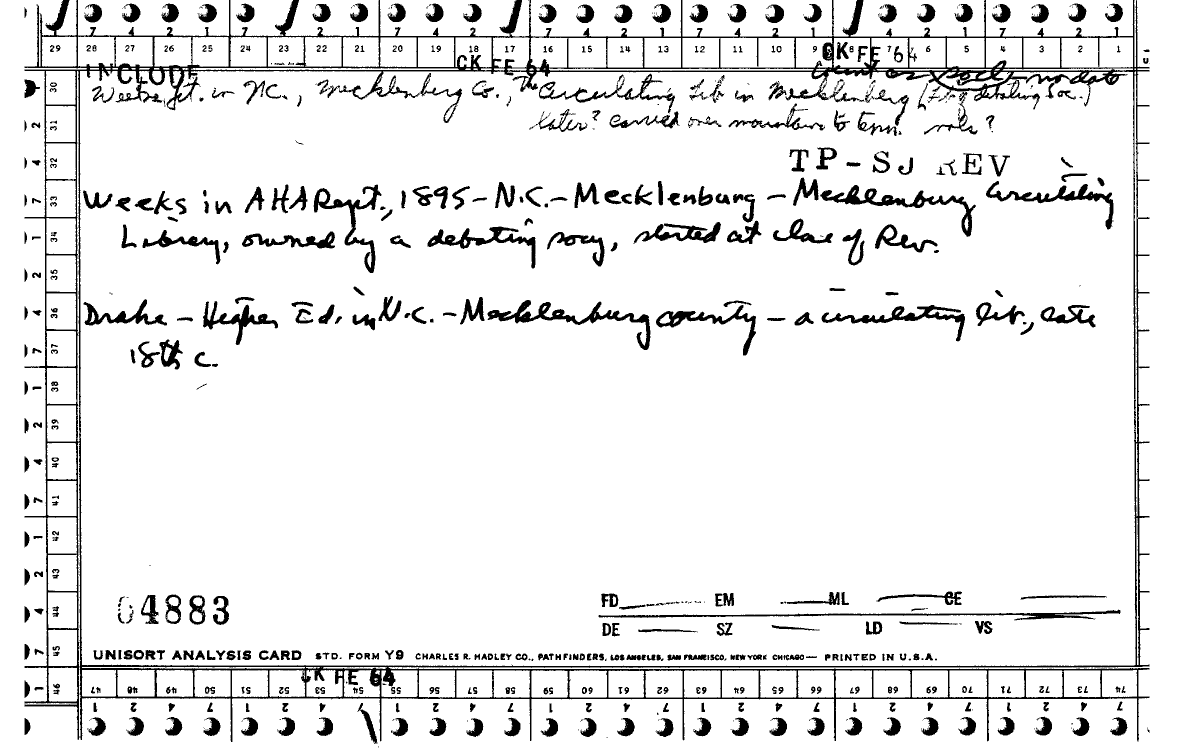 7 4 2 1 7 4 2 1 7 4 2 1 7 4 2 1 7 4 2 1 7 4 2 1 7 4 2 1
29 28 27 26 25 24 23 22 21 20 19 18 17 16 15 14 13 12 11 10 9 8 7 6 5 4 3 2 1
CK FE 64 CK FE 64
INCLODE Count as socly no date
Weeks, Lit. in N.C., Mecklenberg Co., The Circulating Lib in Mecklenberg (debating Soc.)
later? carried over mountains to Tenn. vols?
TP-SJ REV
Weeks in AHA Rept., 1895 - N.C. - Mecklenburg - Mecklenburg Circulating
Library, owned by a debating socy, started at close of Rev.
Drake - Higher Ed. in N.C. - Mecklenburg county - a circulating lib., late
18th c.
30
2 31
4 32
7 33
1 34
2 35
4 36
7 37
1 38
2 39
4 40
7 41
1 42
2 43
4 44
7 45
1 46
04883
FD EM ML CE
DE SZ LD VS
UNISORT ANALYSIS CARD STD. FORM Y9 CHARLES R. HADLEY CO., PATHFINDERS, LOS ANGELES, SAN FRANCISCO, NEW YORK CHICAGO — PRINTED IN U.S.A.
CK FE 64
47 48 49 50 51 52 53 54 55 56 57 58 59 60 61 62 63 64 65 66 67 68 69 70 71 72 73 74
1 2 4 7 1 2 4 7 1 2 4 7 1 2 4 7 1 2 4 7 1 2 4 7 1 2 4 7